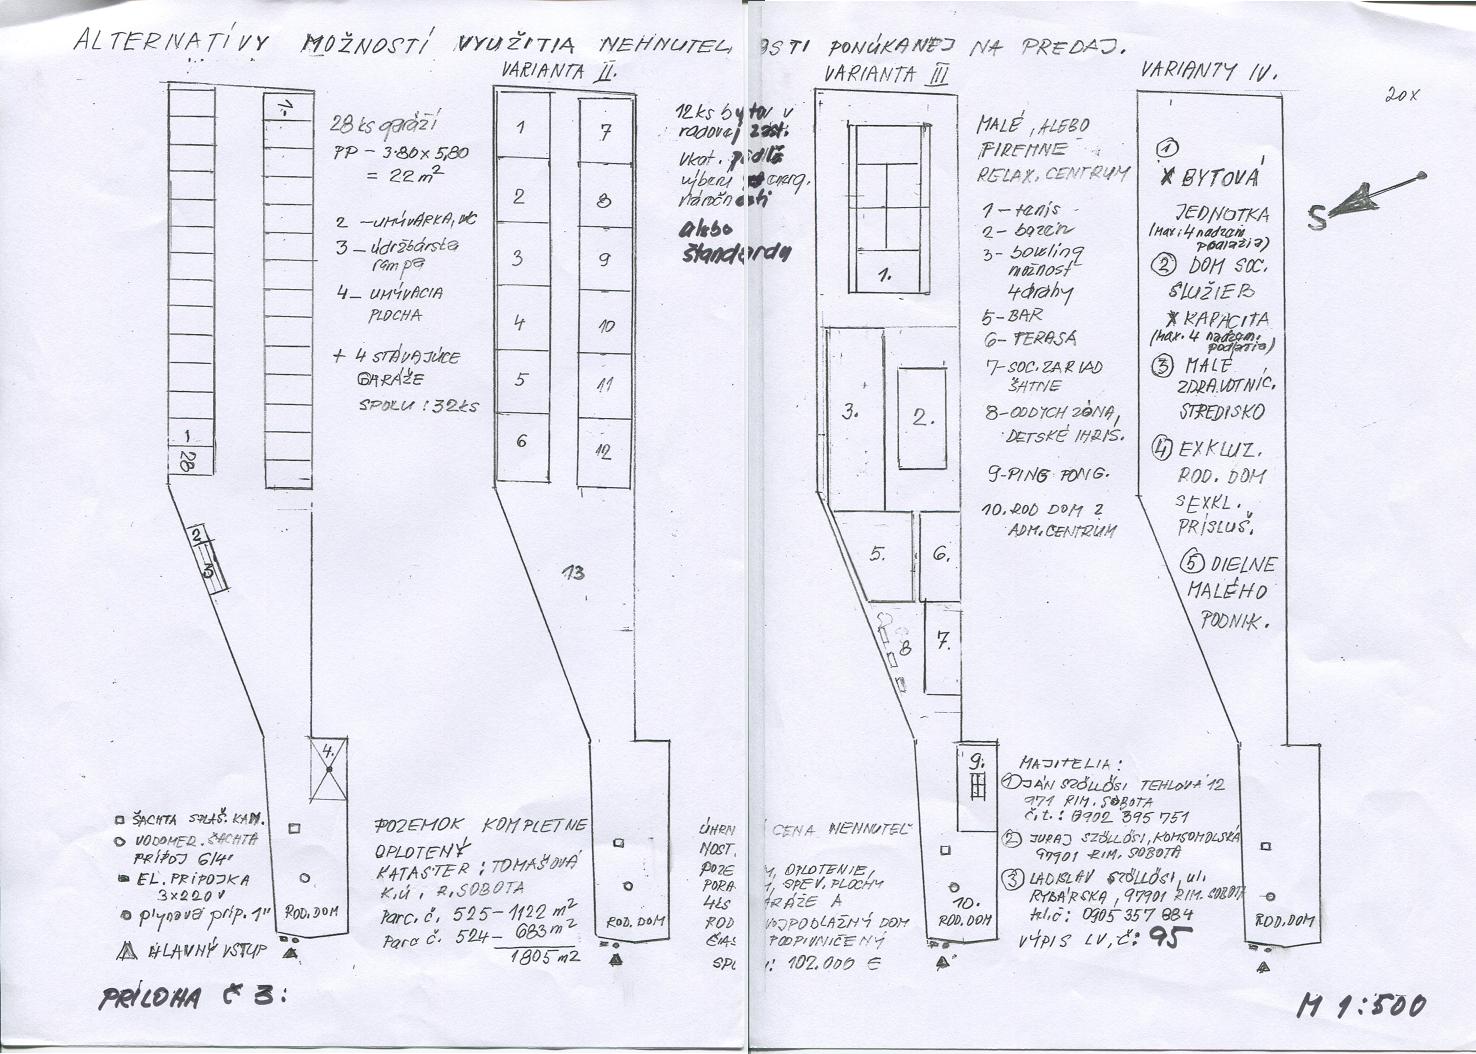 ALTERNATÍVY MOŽNOSTÍ VYUŽITIA NEHNUTEĽ OSTI PONÚKANEJ NA PREDAJ.
1.
1
28
2
3
4.
ROD.DOM
28 ks garáží
PP - 3·80 x 5,80
= 22 m²
2 - UMÝVÁRKA, WC
3 - údržbárska
rampa
4 - UMÝVACIA
PLOCHA
+ 4 STÁVAJÚCE
GARÁŽE
SPOLU : 32ks
VARIANTA II.
1
2
3
4
5
6
7
8
9
10
11
12
13
ROD.DOM
12 ks bytov v
radovej zást.
vkat. podľa
výberu energ.
náročnosti
alebo
štandardu
VARIANTA III
1.
2.
3.
5.
6.
7.
8
9.
10.
ROD.DOM
MALÉ, ALEBO
FIREMNE
RELAX. CENTRUM
1 - tenis
2 - bazén
3 - bowling
možnosť
4 dráhy
5 - BAR
6 - TERASA
7 - SOC. ZARIAD
ŠATNE
8 - ODDYCH ZÓNA,
DETSKÉ IHRIŠ.
9 - PING PONG.
10. ROD DOM 2
ADM. CENTRUM
VARIANTY IV.
20x
S
1
X BYTOVÁ
JEDNOTKA
(max. 4 nadzem
podlažia)
2 DOM SOC.
SLUŽIEB
X KAPACITA
(max. 4 nadzem.
podlažia)
3 MALÉ
ZDRAVOTNÍC.
STREDISKO
4 EXKLUZ.
ROD. DOM
S EXKL.
PRÍSLUŠ.
5 DIELNE
MALÉHO
PODNIK.
ROD.DOM
ŠACHTA SPLAŠ. KAN.
VODOMER. ŠACHTA
PRÍPOJ 6/4"
EL. PRÍPOJKA
3x220 V
plynová príp. 1"
HLAVNÝ VSTUP
POZEMOK KOMPLETNE
OPLOTENÝ
KATASTER : TOMAŠOVÁ
K.Ú. R. SOBOTA
Parc. č. 525 - 1122 m²
Parc č. 524 - 683 m²
1805 m2
ÚHRN CENA NEHNUTEĽ
NOST.
POZE M, OPLOTENIE,
PORA , SPEV. PLOCHY
4KS GARÁŽE A
ROD VOJPODLAŽNÝ DOM
ČIAS PODPIVNIČENÝ
SPO : 102.000 €
MAJITELIA :
1 JÁN SZÖLLŐSI TEHLOVÁ 12
971 RIM. SOBOTA
č.t. : 0902 395 751
2 JURAJ SZÖLLŐSI, KOMSOMOLSKÁ
97901 RIM. SOBOTA
3 LADISLAV SZÖLLŐSI, ul.
RYBÁRSKA, 97901 RIM. SOBOTA
tel.č : 0905 357 884
VÝPIS LV, č : 95
PRÍLOHA Č 3 :
M 1 : 500